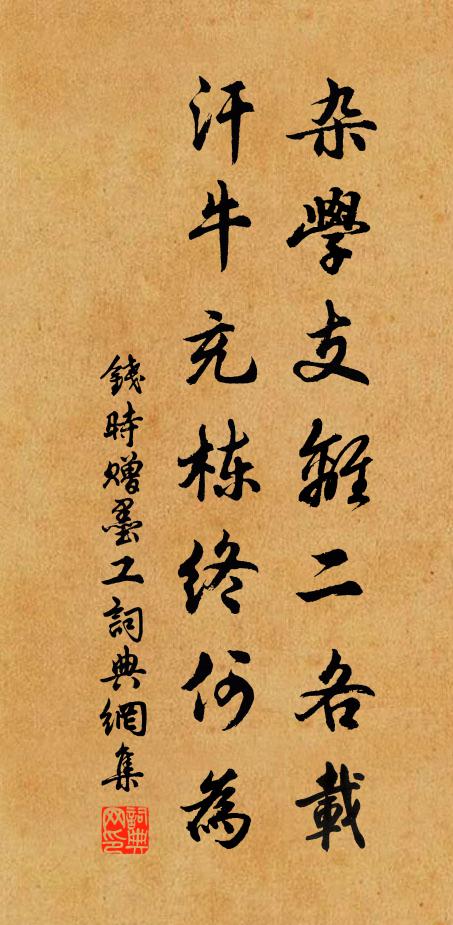 杂學支離二各載
汗牛充栋終何為
錢時贈墨工詞典網集
詞典
网印